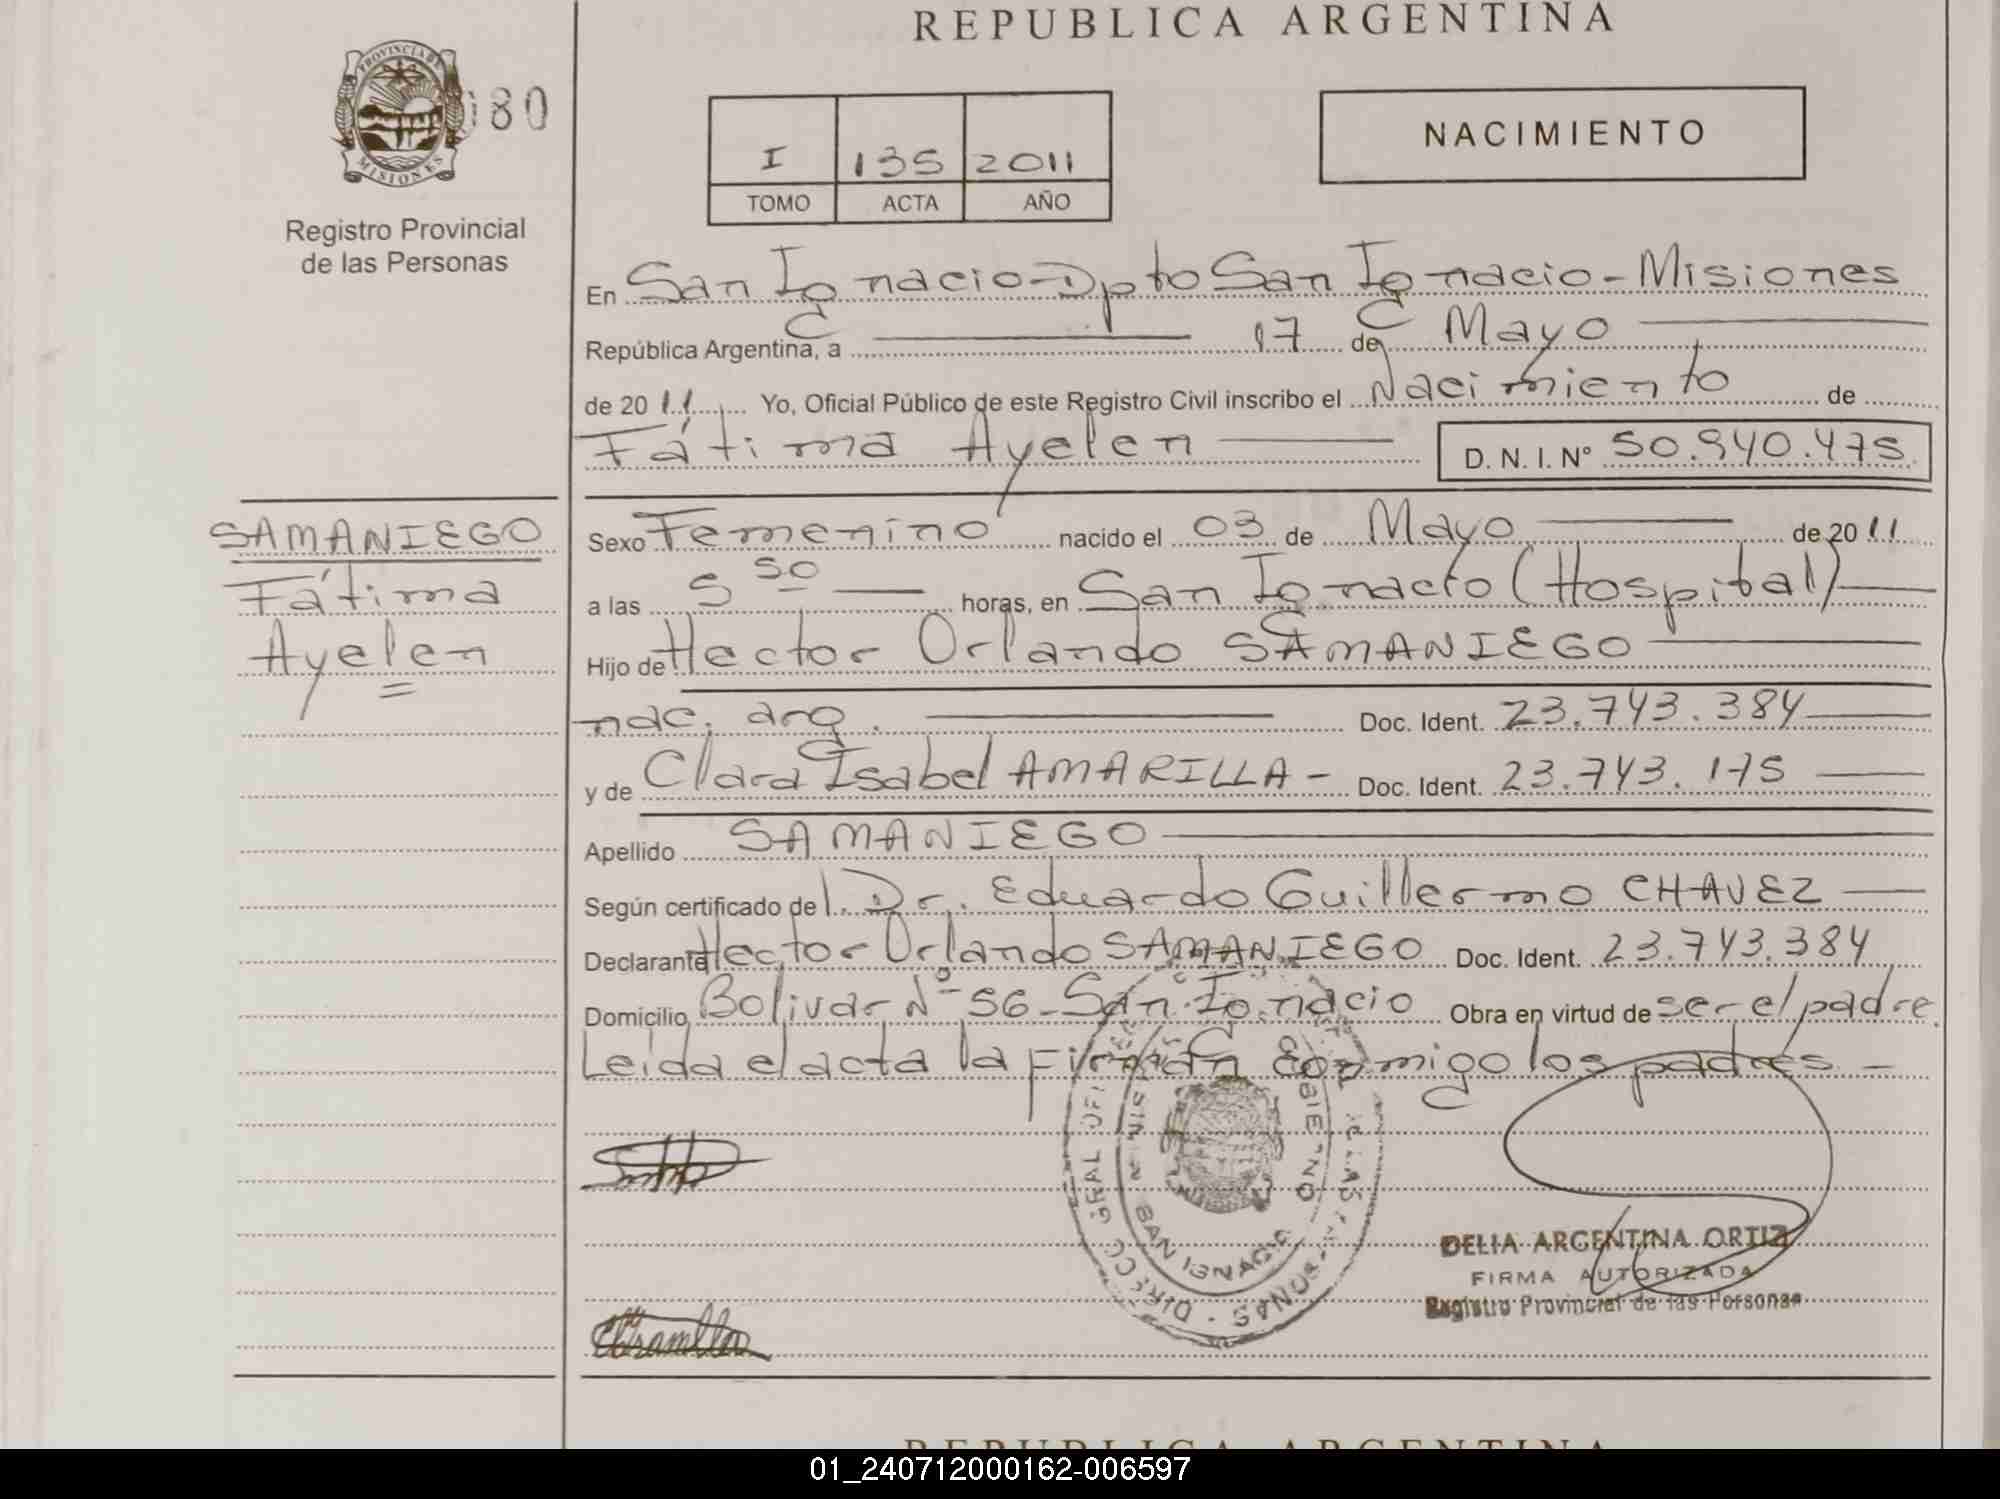 REPUBLICA ARGENTINA
PROVINCIA DE
MISIONES
180
Registro Provincial
de las Personas
I 135 2011
TOMO ACTA AÑO
NACIMIENTO
En San Ignacio - Dpto San Ignacio - Misiones
República Argentina, a 17 de Mayo
de 2011 Yo, Oficial Público de este Registro Civil inscribo el Nacimiento de
Fátima Ayelen D.N.I.Nº 50.940.475
SAMANIEGO
Fátima
Ayelen
Sexo Femenino nacido el 03 de Mayo de 2011
a las 5 50 horas, en San Ignacio (Hospital)
Hijo de Hector Orlando SAMANIEGO
nac. arg. Doc. Ident. 23.743.384
y de Clara Isabel AMARILLA - Doc. Ident. 23.743.175
Apellido SAMANIEGO
Según certificado del Dr. Eduardo Guillermo CHAVEZ
Declarante Hector Orlando SAMANIEGO Doc. Ident. 23.743.384
Domicilio Bolivar Nº 56 - San Ignacio Obra en virtud de ser el padre.
Leida el acta la firman conmigo los padres -
DIRECC GRAL OFI
SAN IGNACIO
DELIA ARGENTINA ORTIZ
FIRMA AUTORIZADA
Registro Provincial de las Personas
REPUBLICA ARGENTINA
01_240712000162-006597